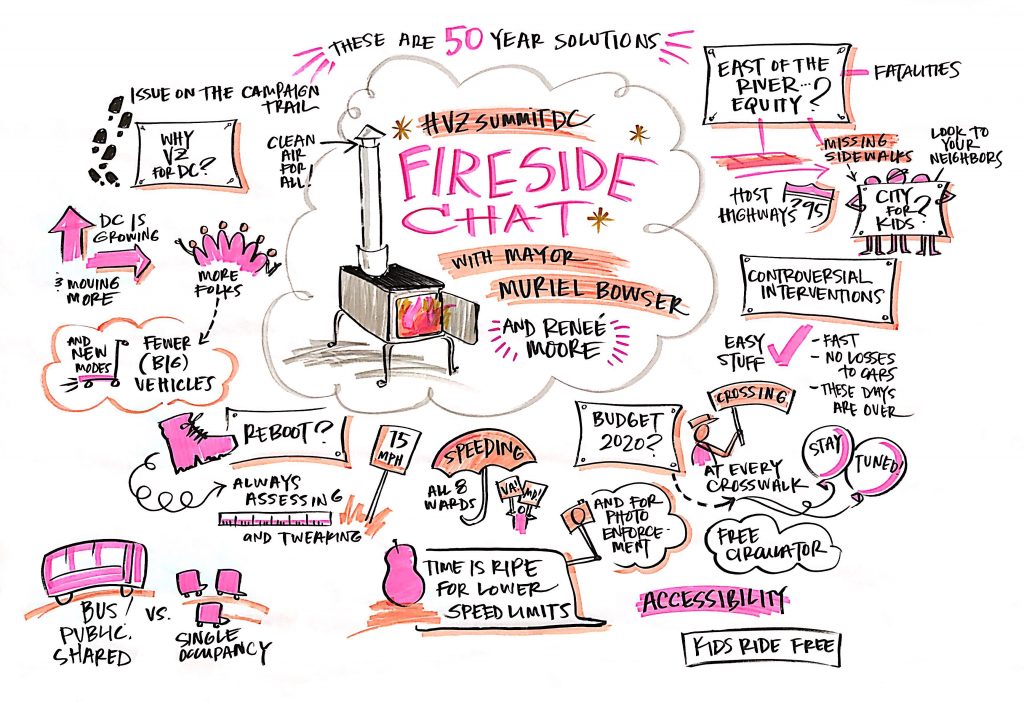 THESE ARE 50 YEAR SOLUTIONS
#VZSUMMITDC
FIRESIDE
CHAT
WITH MAYOR
MURIEL BOWSER
AND RENEÉ
MOORE
CLEAN
AIR
FOR
ALL
ISSUE ON THE CAMPAIGN
TRAIL
WHY
VZ
FOR DC?
DC IS
GROWING
& MOVING
MORE
MORE
FOLKS
AND
NEW
MODES
FEWER
(BIG)
VEHICLES
REBOOT?
ALWAYS
ASSESSING
AND TWEAKING
15
MPH
SPEEDING
ALL 8
WARDS
VA!
MD!
BUS!
PUBLIC.
SHARED
VS.
SINGLE
OCCUPANCY
TIME IS RIPE
FOR LOWER
SPEED LIMITS
AND FOR
PHOTO
ENFORCE-
MENT
EAST OF THE
RIVER...?
EQUITY?
FATALITIES
MISSING
SIDEWALKS
LOOK TO
YOUR
NEIGHBORS
HOST
HIGHWAYS
295
CITY
FOR
KIDS?
CONTROVERSIAL
INTERVENTIONS
EASY
STUFF
- FAST
- NO LOSSES
TO CARS
- THESE DAYS
ARE OVER
BUDGET
2020?
CROSSING
AT EVERY
CROSSWALK
STAY
TUNED!
FREE
CIRCULATOR
ACCESSIBILITY
KIDS RIDE FREE